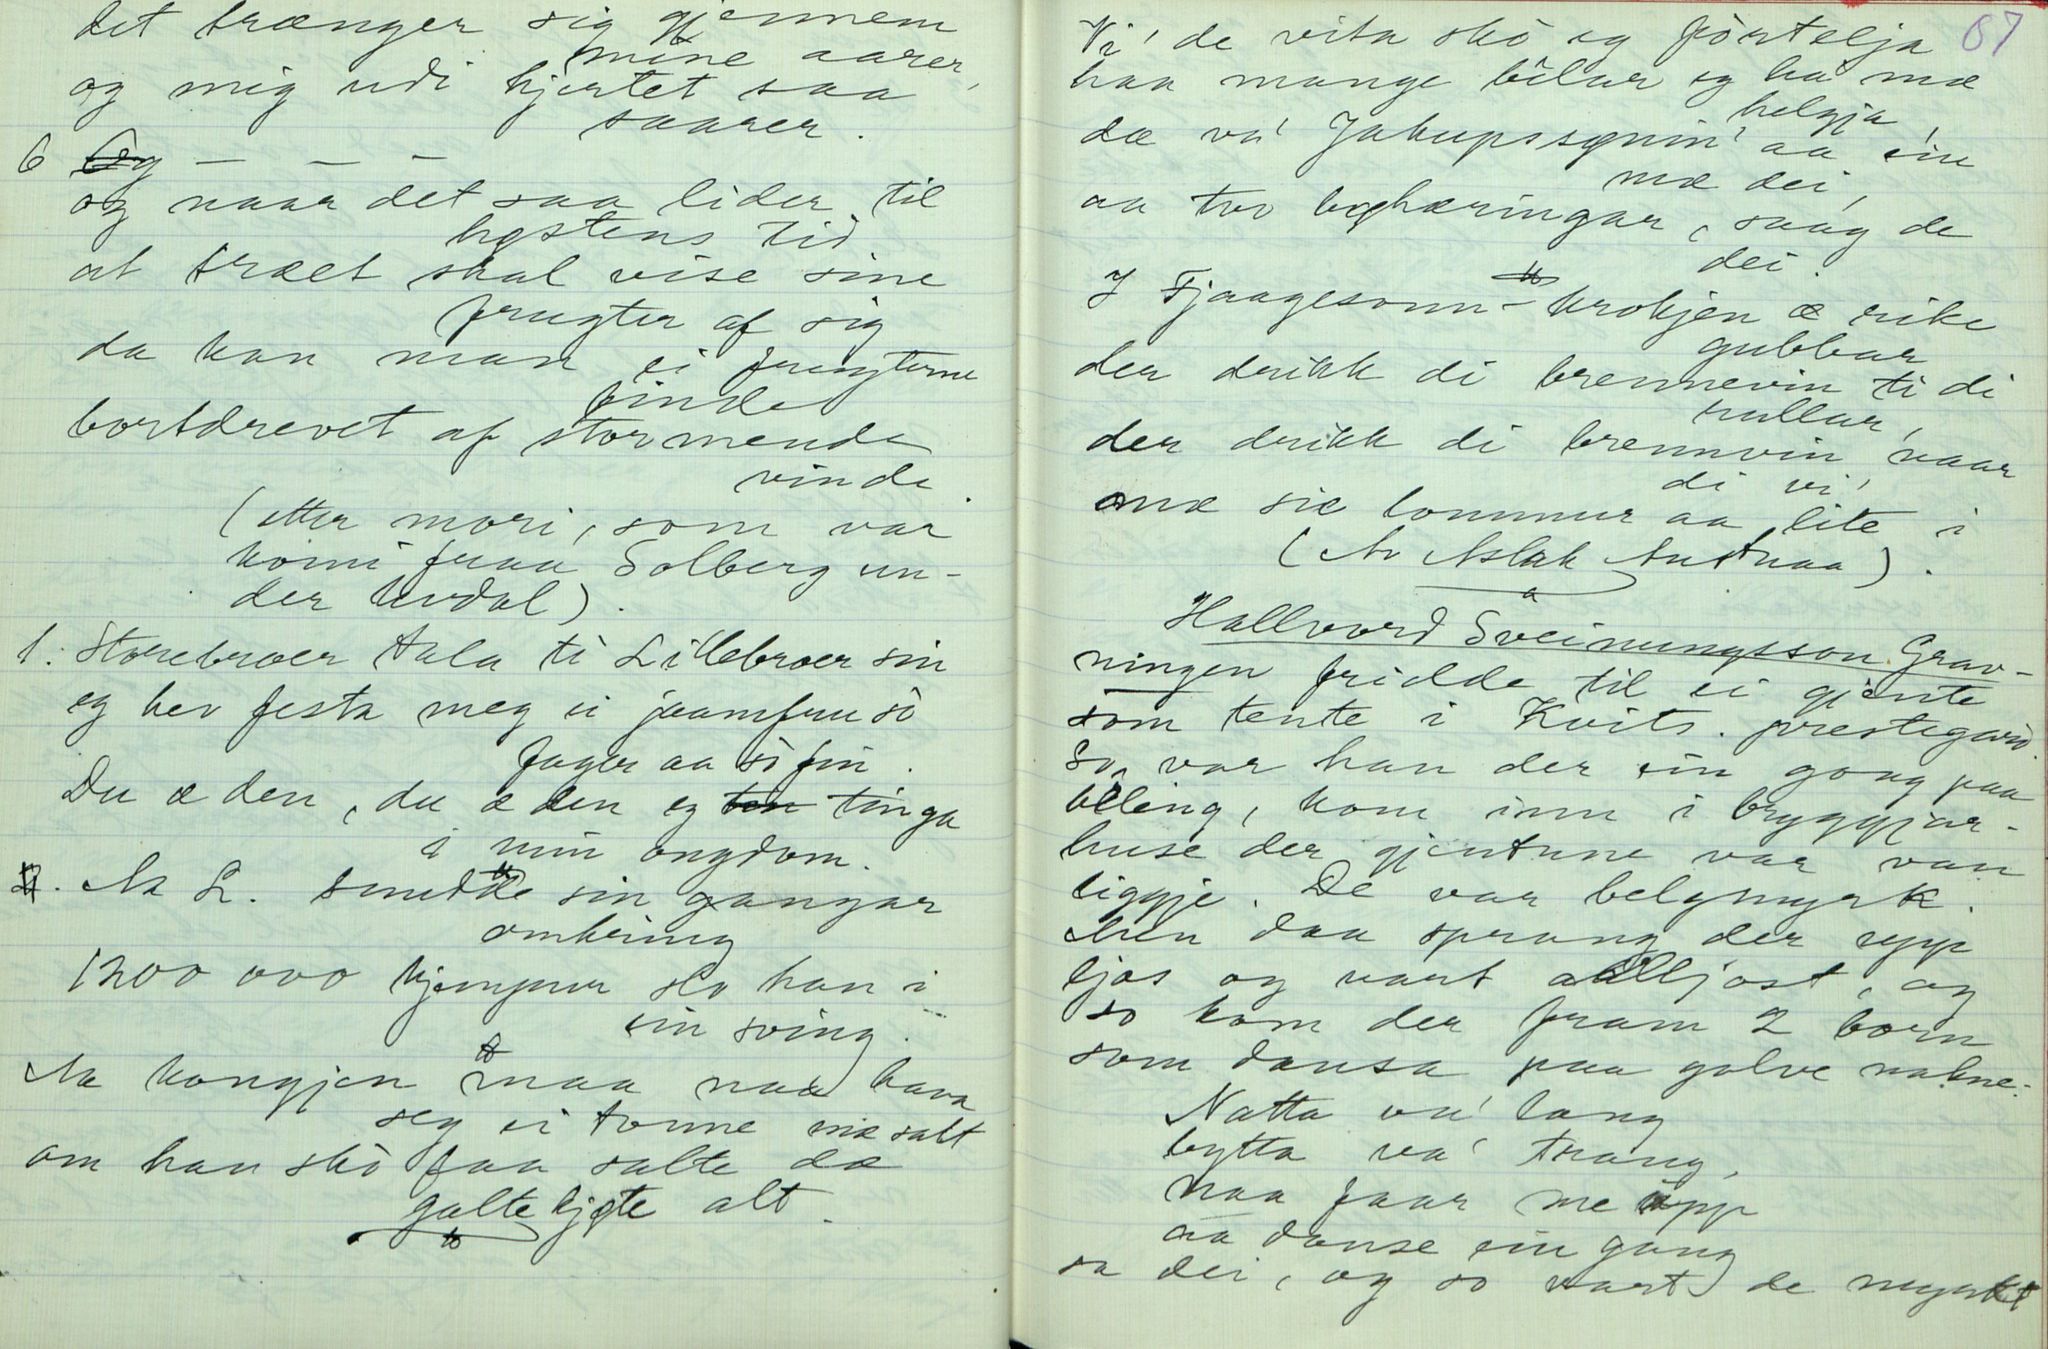 det trænger sig gjennem
mine aarer,
og mig udi hjertet saa
saarer.
6 Og — — —
og naar det saa lider til
høstens tid
at træet skal vise sine
frugter af sig
da kan man ei frugterne
finde
bortdrevet af stormende
vinde.
(etter mori, som var
komi fraa Solberg un-
der Uvdal).
1. Storebroer tala ti Lillebroer sin
eg hev festa meg ei jaamfru sò
fager aa sò fin.
Du æ den, du æ den eg ten tinga
i min ongdom.
Aa L. smedde sin gangar
omkring
1200 000 kjempur slo han i
ein sving.
Aa kongjen maa naa hava
seg ei tonne mæ salt
om han skò faa salte dæ
galtekjøte alt.
67
Vi' de vita skò eg fòrtelja
haa mange bilar eg ha mæ
helgja,
dæ va' Jakupssønin' aa ein
mæ dei,
aa tvo byghæringar, saag de
dei.
I Fjaagesonn-krokjen æ rike
gubbar
der drikk di brennevin ti di
rullar,
der drikk di brennvin naar
di vi'
mæ sie lommur aa lite i
(Av Aslak Austnaa).
Hallvord Sveinungsson Grav-
ningen fridde til ei gjente
som tente i Kvits. prestegard.
So var han der ein gong paa
beling, kom inn i bryggjar-
huse der gjentune var van
liggje. De var belgmyrk.
Men daa sprang der upp
ljos og vart aalljost, og
so kom der fram 2 born
som dansa paa golve nakne.
Natta va' lang
bytta va' trang,
naa faar me upp
aa danse ein gang
sa dei, og so vart de myrkt